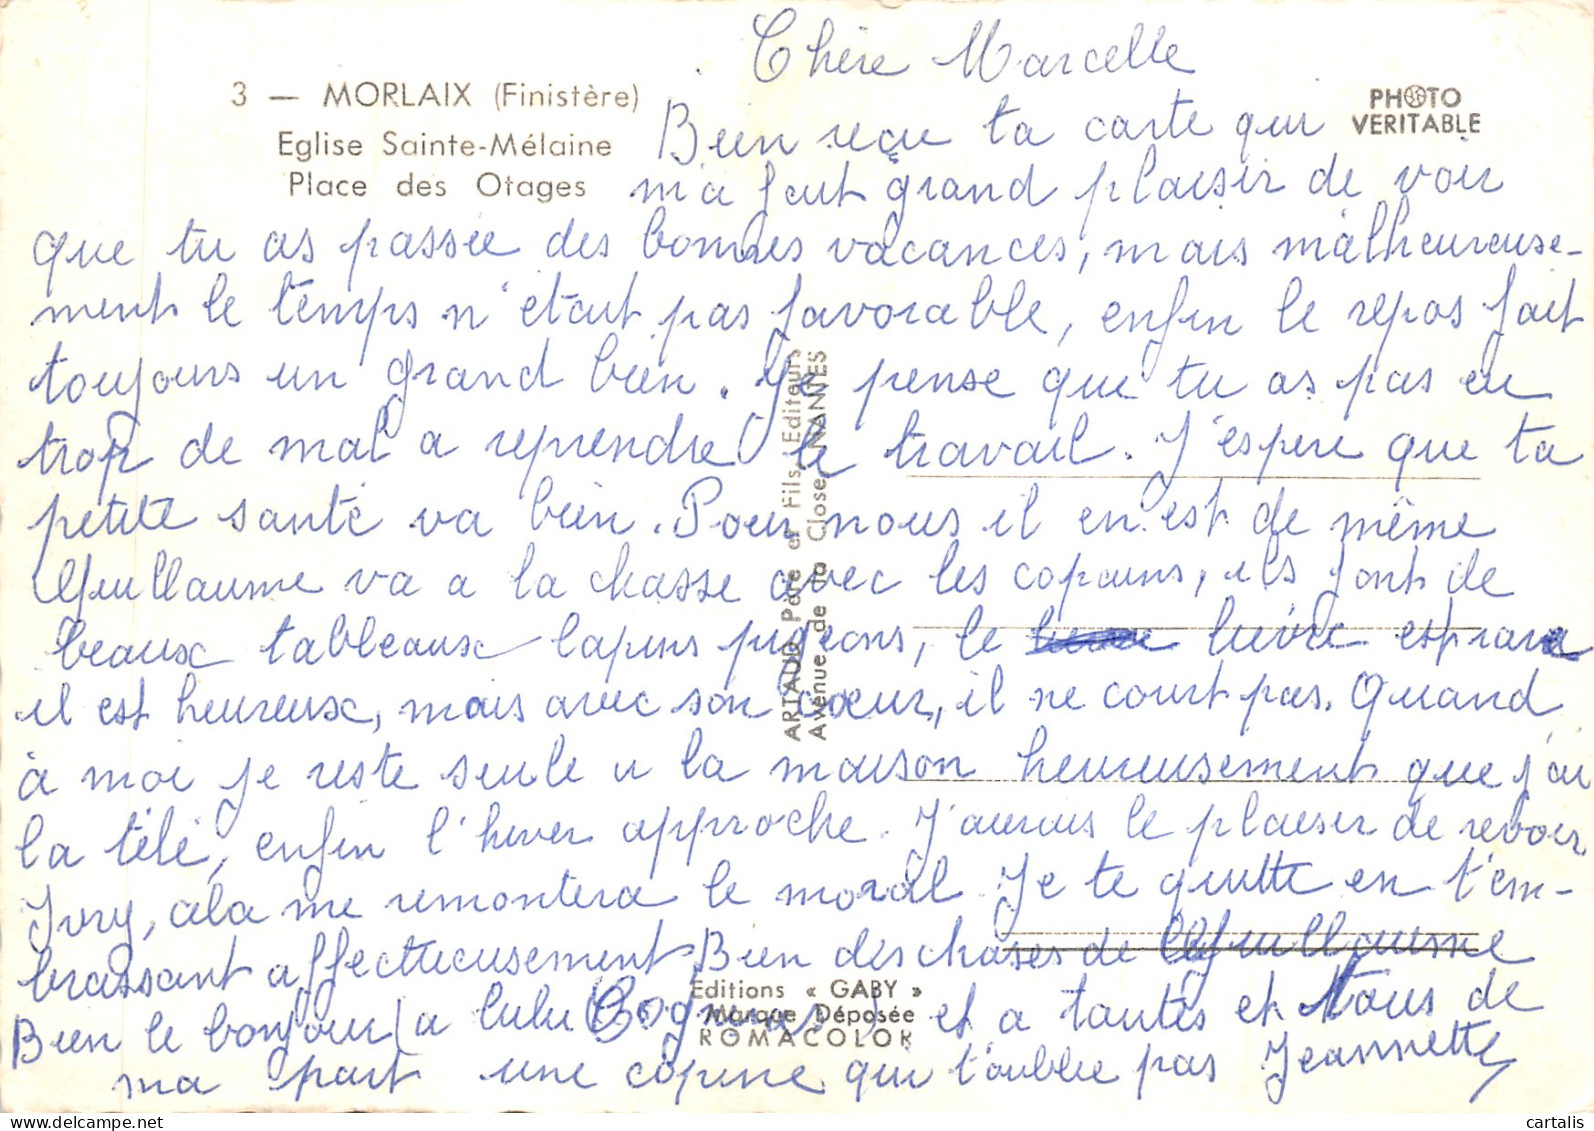 Chère Marcelle
3 — MORLAIX (Finistère)
Eglise Sainte-Mélaine
Place des Otages
PHOTO
VERITABLE
Bien reçu ta carte qui
m'a fait grand plaisir de voir
que tu as passée des bonnes vacances, mais malheureuse-
ment le temps n'était pas favorable, enfin le repos fait
toujours un grand bien. Je pense que tu as pas eu
trop de mal a reprendre le travail. J'espere que ta
petite santé va bien. Pour nous il en est de même
Guillaume va a la chasse avec les copains, ils font de
beaux tableaux lapins pigeons, le lièvre
il est heureux, mais avec son cœur, il ne court pas. Quand
à moi je reste seule a la maison heureusement que j'ai
la télé, enfin l'hiver approche. J'aurais le plaisir de revoir
Ivry, cela me remontera le moral. Je te quitte en t'em-
brassant affectueusement Bien des choses de Guillaume
Bien le bonjour (a lulu                ) et a toutes et tous de
ma part une copine qui t'oublie pas Jeannette
ARTAUD Père et Fils, Editeurs
Avenue de la Close NANTES
Editions « GABY »
Marque Déposée
ROMACOLOR
cartalis